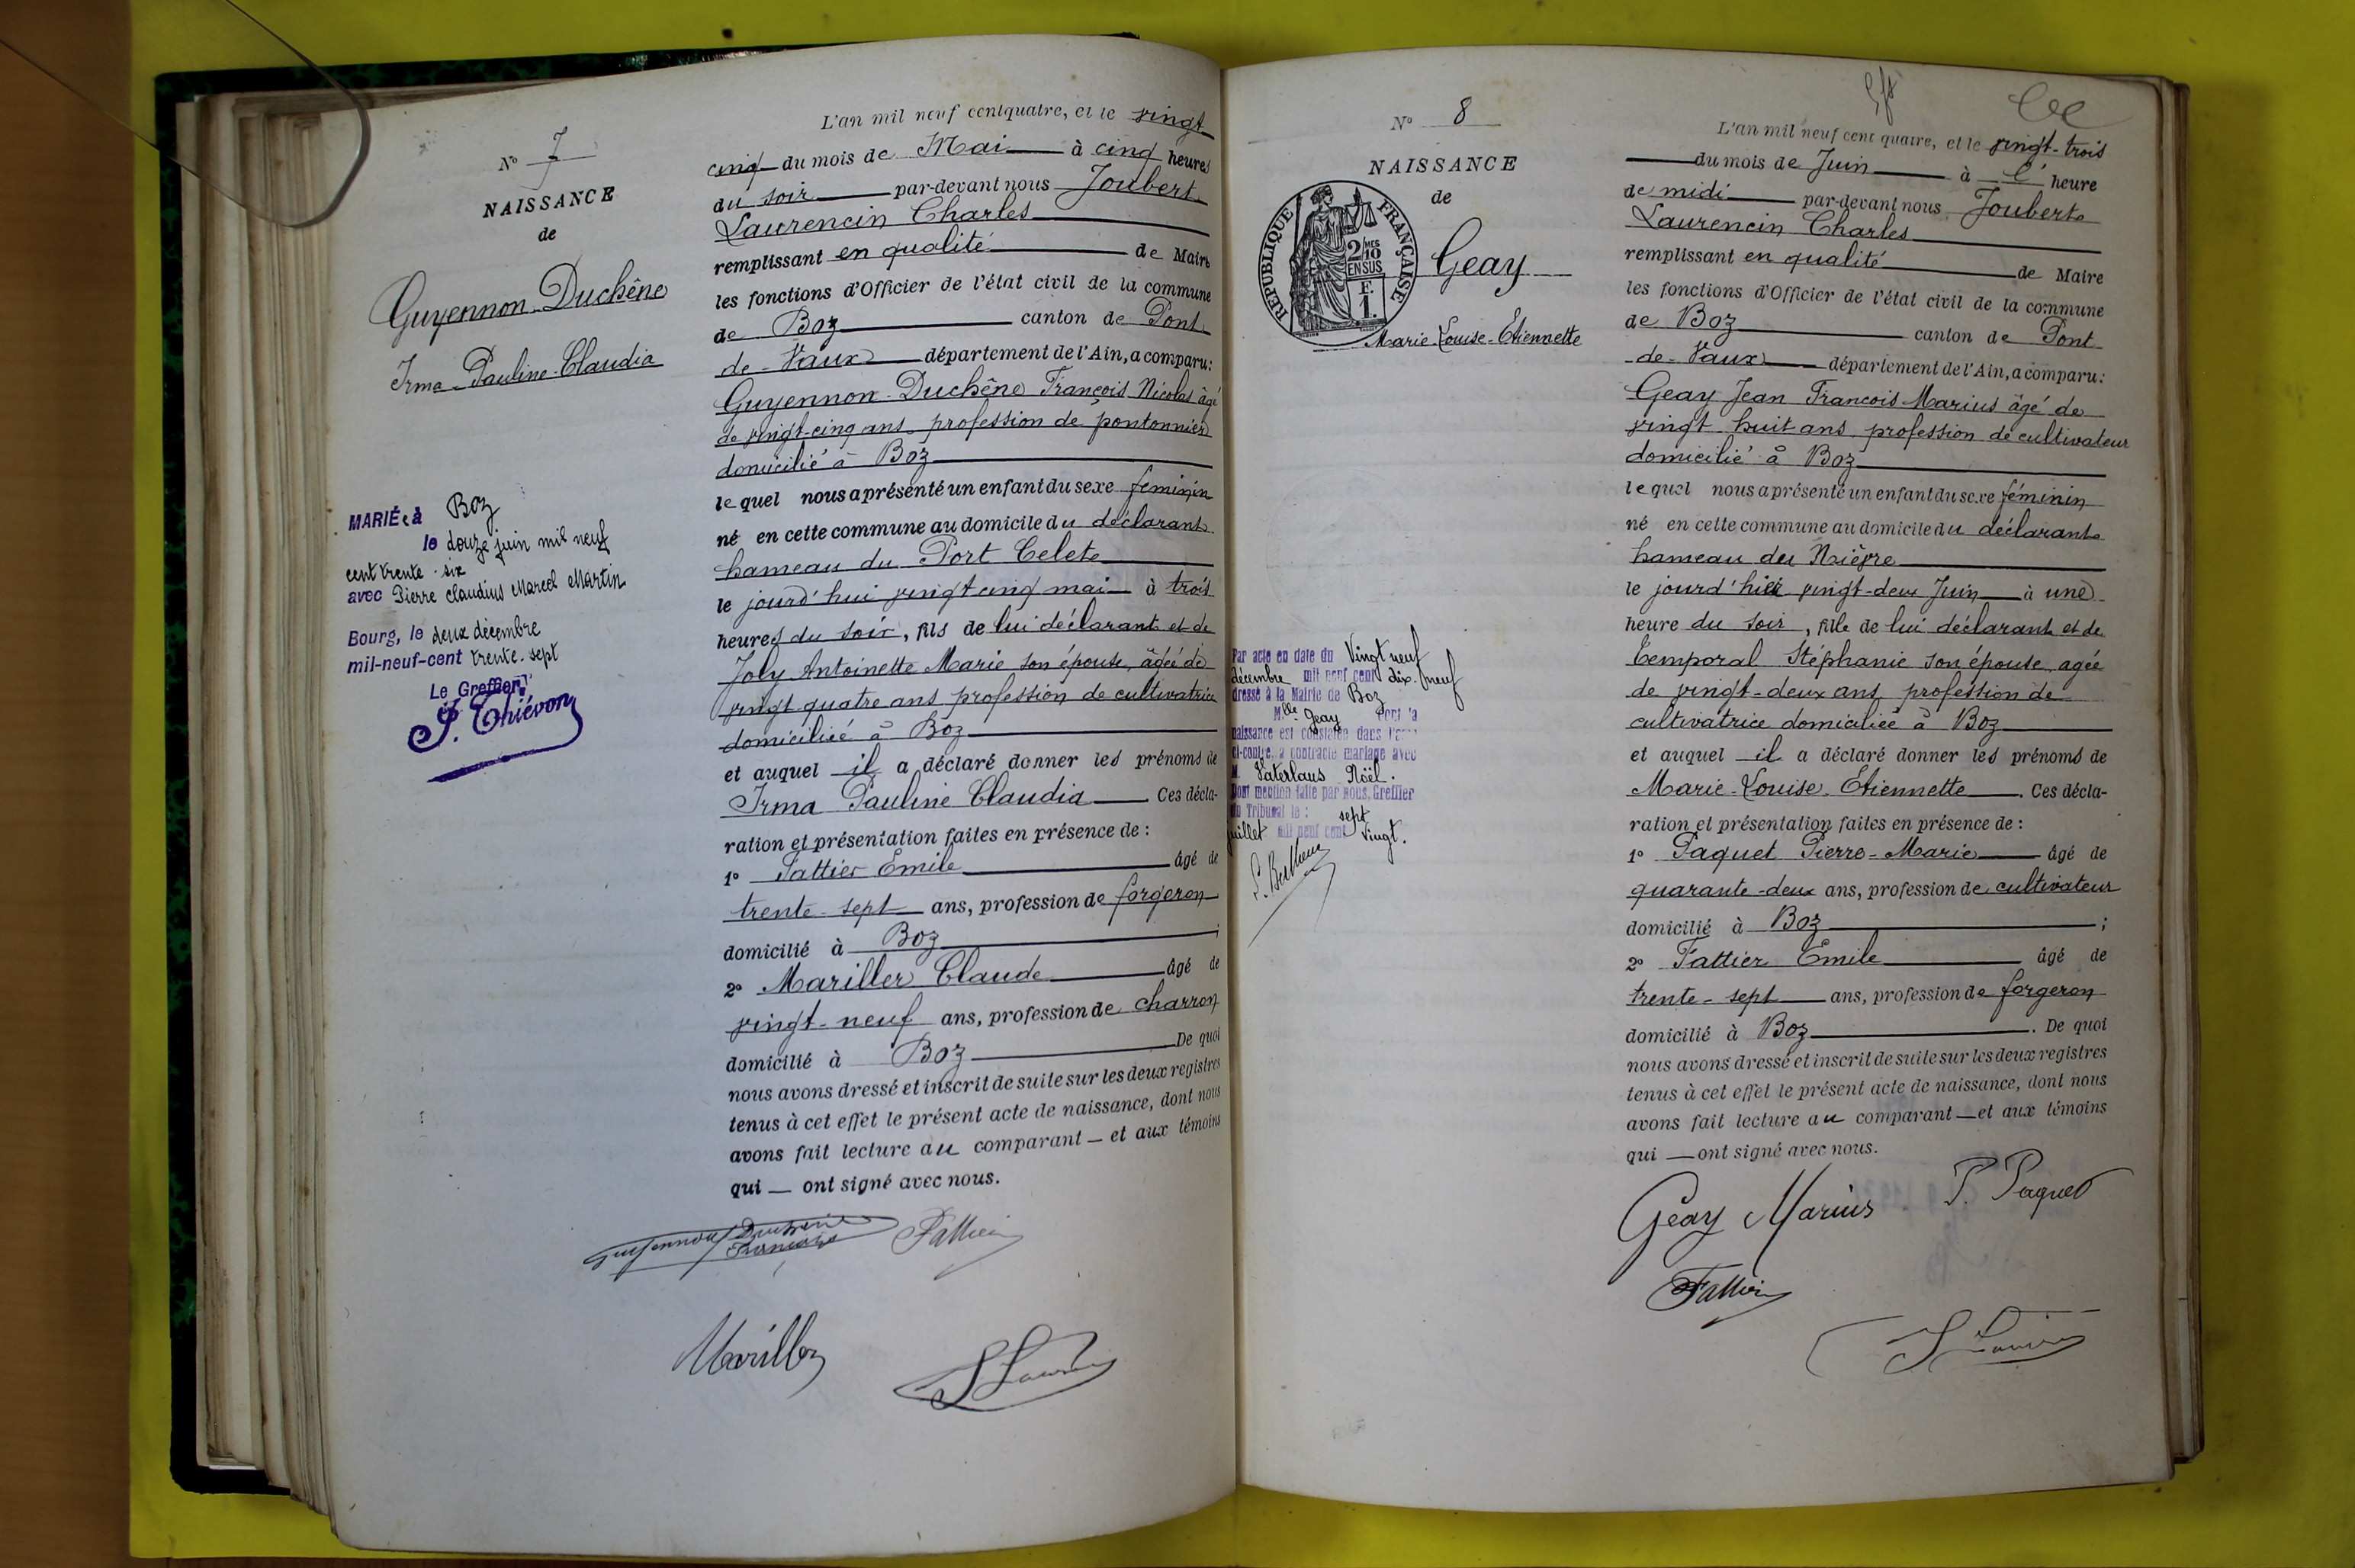 N° 7
NAISSANCE
de
Guyennon-Duchêne
Irma-Pauline-Claudia
MARIÉe à Boz
le douze juin mil neuf
cent trente-six
avec Pierre Claudius Marcel Martin
Bourg, le deux décembre
mil-neuf-cent trente-sept
Le Greffier,
P. Thiévon
L'an mil neuf cent quatre, et le vingt
cinq du mois de Mai à cinq heures
du soir par-devant nous Joubert
Laurencin Charles
remplissant en qualité de Maire
les fonctions d'Officier de l'état civil de la commune
de Boz canton de Pont
de-Vaux département de l'Ain, a comparu:
Guyennon-Duchêne François Nicolas âgé
de vingt-cinq ans profession de pontonnier
domicilié à Boz
lequel nous a présenté un enfant du sexe féminin
né en cette commune au domicile du déclarant
hameau du Port Celet
le jourd'hui vingt cinq mai à trois
heures du soir, fils de lui déclarant et de
Joly Antoinette Marie son épouse, âgée de
vingt quatre ans profession de cultivatrice
domiciliée à Boz
et auquel il a déclaré donner les prénoms de
Irma Pauline Claudia Ces décla-
ration et présentation faites en présence de :
1° Fattier Emile âgé de
trente-sept ans, profession de forgeron
domicilié à Boz ;
2° Mariller Claude âgé de
vingt-neuf ans, profession de charron
domicilié à Boz De quoi
nous avons dressé et inscrit de suite sur les deux registres
tenus à cet effet le présent acte de naissance, dont nous
avons fait lecture au comparant et aux témoins
qui ont signé avec nous.
Guyennon Duchêne
François Fattier
Mariller
N° 8
NAISSANCE
de
RÉPUBLIQUE FRANÇAISE
2/10 MES
EN SUS
F.
1.
Geay
Marie-Louise-Etiennette
Par acte en date du Vingt neuf
décembre mil neuf cent dix-neuf
dressé à la Mairie de Boz
Mlle Geay dont la
naissance est constatée dans l'acte
ci-contre, a contracté mariage avec
M. Vaterlaus Noël.
Dont mention faite par nous, Greffier
du Tribunal le : sept
juillet mil neuf cent vingt.
L'an mil neuf cent quatre, et le vingt-trois
du mois de Juin à l' heure
de midi par-devant nous Joubert
Laurencin Charles
remplissant en qualité de Maire
les fonctions d'Officier de l'état civil de la commune
de Boz canton de Pont
de-Vaux département de l'Ain, a comparu:
Geay Jean François Marius âgé de
vingt huit ans profession de cultivateur
domicilié à Boz
lequel nous a présenté un enfant du sexe féminin
né en cette commune au domicile du déclarant
hameau des Nièvre
le jourd'hier vingt-deux Juin à une
heure du soir, fille de lui déclarant et de
Temporal Stéphanie son épouse, agée
de vingt-deux ans, profession de
cultivatrice domiciliée à Boz
et auquel il a déclaré donner les prénoms de
Marie-Louise Etiennette. Ces décla-
ration et présentation faites en présence de :
1° Paquet Pierre-Marie âgé de
quarante-deux ans, profession de cultivateur
domicilié à Boz ;
2° Fattier Emile âgé de
trente-sept ans, profession de forgeron
domicilié à Boz. De quoi
nous avons dressé et inscrit de suite sur les deux registres
tenus à cet effet le présent acte de naissance, dont nous
avons fait lecture au comparant et aux témoins
qui ont signé avec nous.
Geay Marius P. Paquet
Fattier